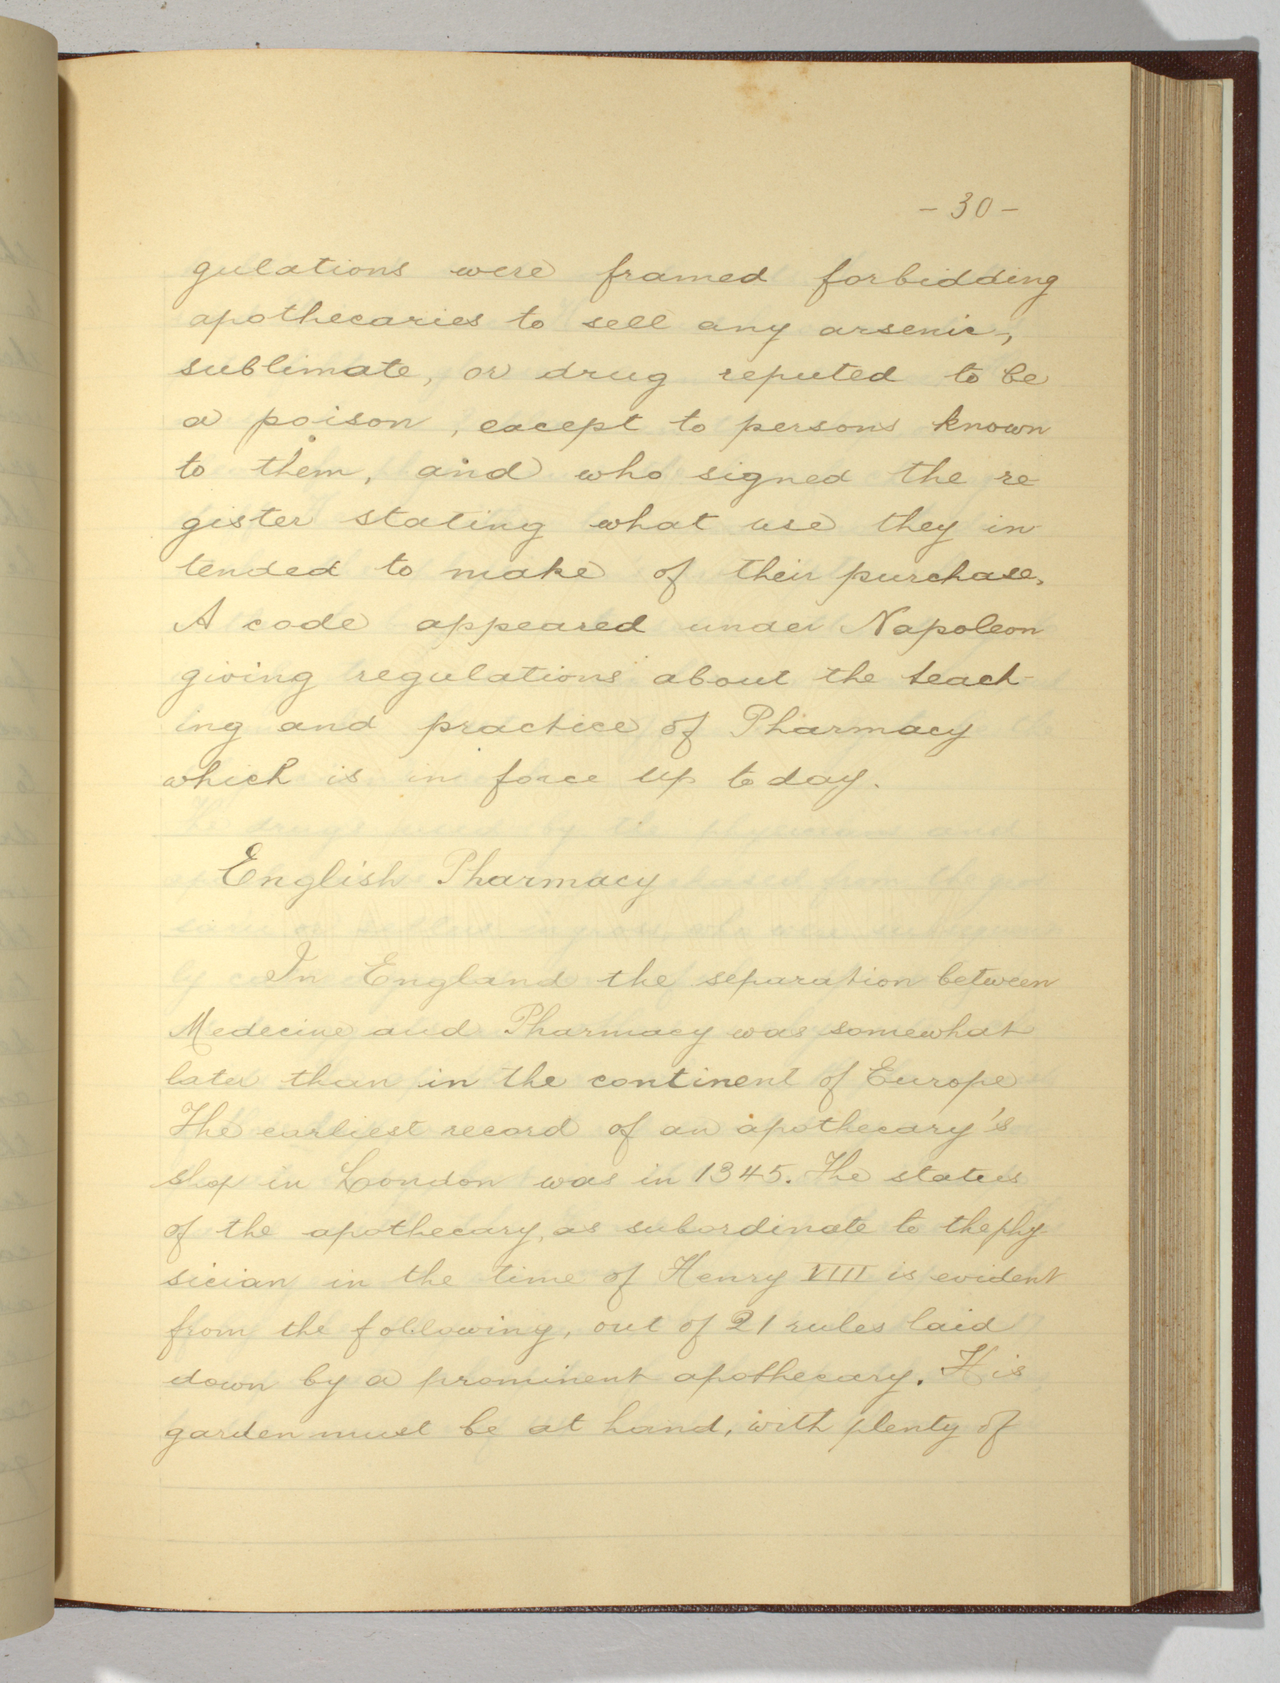 - 30 -
gulations were framed forbidding
apothecaries to sell any arsenic,
sublimate, or drug reputed to be
a poison, except to persons known
to them, and who signed the re
gister stating what use they in
tended to make of their purchase.
A code appeared under Napoleon
giving regulations about the teach-
ing and practice of Pharmacy
which is in force up to day.
English Pharmacy
In England the separation between
Medecine and Pharmacy was somewhat
later than in the continent of Europe
The earliest record of an apothecary's
shop in London was in 1345. The status
of the apothecary, as subordinate to the phy
sician in the time of Henry VIII is evident
from the following, out of 21 rules laid
down by a prominent apothecary. His
garden must be at hand, with plenty of